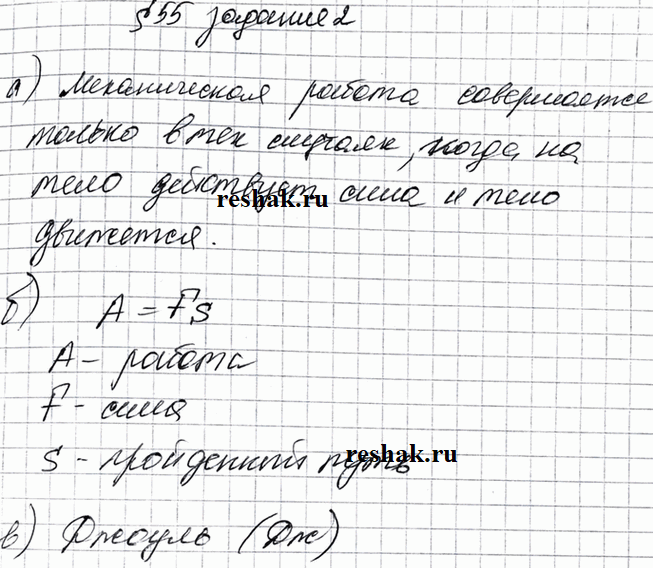 §55 задание 2
а) Механическая работа совершается
только в тех случаях, когда на
тело действует сила и тело
reshak.ru
движется.
б) A = Fs
A - работа
F - сила
s - пройденный путь
reshak.ru
в) Джоуль (Дж)